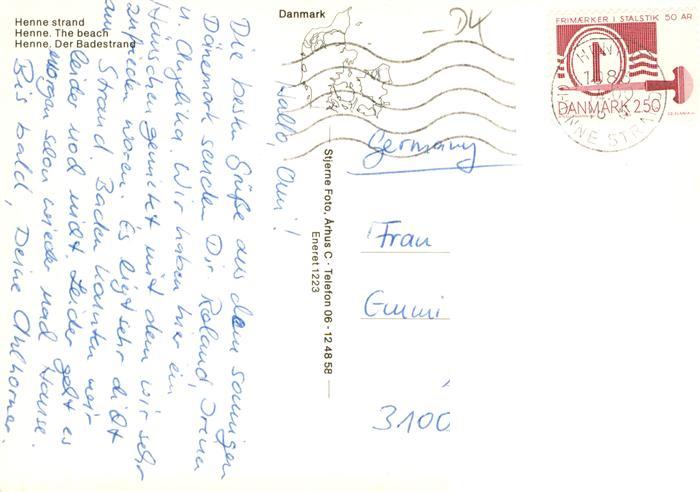 Henne strand
Henne. The beach
Henne. Der Badestrand
Danmark
Hallo, Omi!
Die besten Grüße aus dem sonnigen
Dänemark senden Dir Roland, Irena
u. Angelika. Wir haben hier ein
Häuschen gemietet mit dem wir sehr
zufrieden waren. Es liegt sehr dicht
am Strand. Baden konnten wir
leider noch nicht. Leider geht es
morgen schon wieder nach Hause.
Bis bald, Deine Ahlhorner.
Stjerne Foto, Århus C · Telefon 06 - 12 48 58
Eneret 1223
- D4
FRIMÆRKER I STALSTIK 50 AR
1
DANMARK 250
HENNE STRAND
Germany
Frau
Emmi
3100